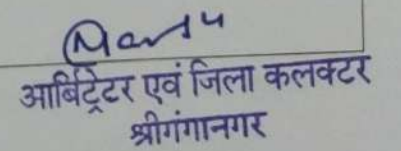 आर्बिट्रेटर एवं जिला कलक्टर
श्रीगंगानगर